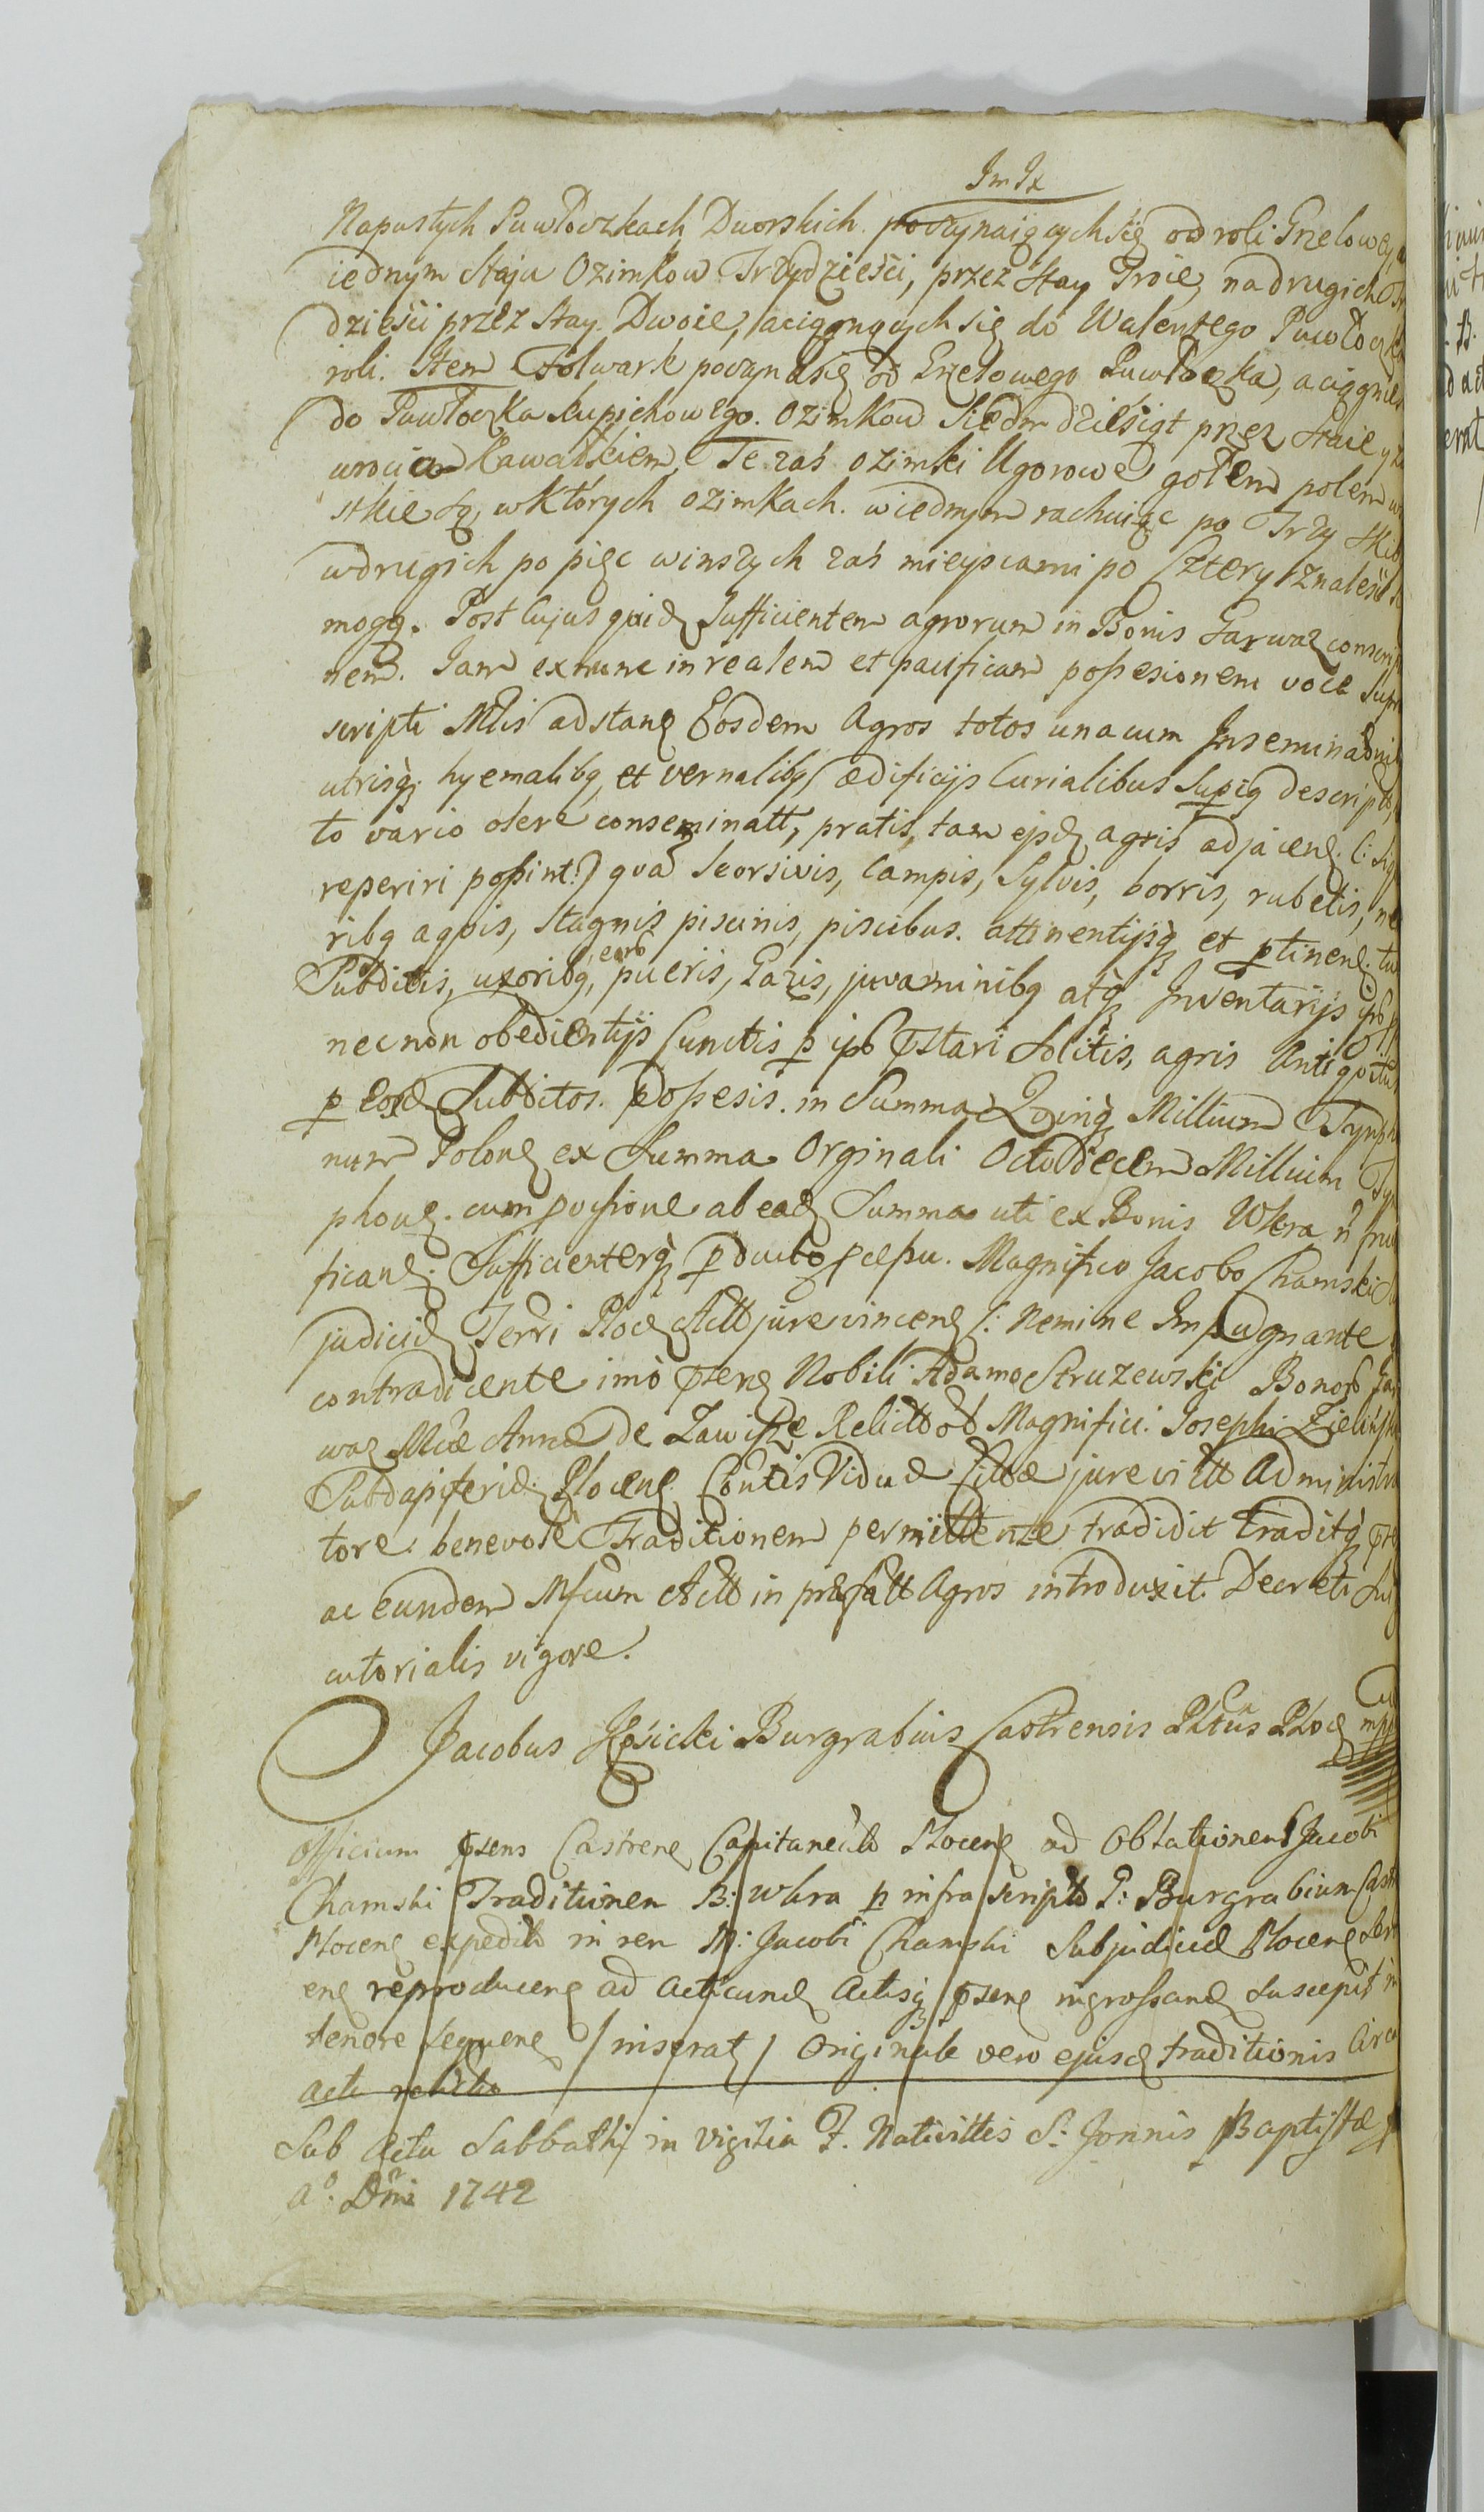 Im Ix
Napustych Puwłoczkach Dworskich poczynaiących się od roli Grzelowey,
iednym staju Ozimkow Trzydzieści, przez stay Troie, na drugich
dzieści przez stay Dwoie, aciągnących się do Walentego Puwłoczka
roli. Item Folwark poczyna się od Grzelowego Puwłoczka, a ciągnie
do Puwłoczka kupichowego. Ozimkow Siedmdziesiąt przez staie y
uvocia Kawałkiem, Te zaś ozimki Ugorowe gołem polem
stkie są, wktorych ozimkach. wiednym rachuiąc po Trzy skib
wdrugich po pięc winszych zaś mieyscami po Cztery znaleść
mogą. Post Cujus quid Sufficientem agrorum in Bonis Garwaz conscrip
nem. Jam exnunc in realem et pacificam possesionem voce Supra
scripti Mlis adstanȩ Eosdem Agros totos unacum Inseminaonib
utrisq hyemalibq et vernalibq ædificijs Curialibus Supiq descript
to vario olere conseminatt, pratis, tam ejsdȩ agris adjacenȩ (: si
reperiri possint:) qva seorsivis, Campis, Sylvis, borris, rubetis, ne
ribq aqvis, stagnis piscinis, piscibus. attinentijsq et ptinenȩ
eor
Subditis, uxoribq, pueris, Gazis, juvaminibq atq Inventarijs
necnon obedientijs Cunctis p ips pstari Solitis, agris Antiqvitus
p eosd Subditos. possesis. in Summa Qvinq Millium Tynpho
num Polonȩ ex Summa Orginali Octodecem Millium
phonȩ. cum pvisione ab eadȩ Summa uti ex Bonis Wkra
ficanȩ. Sufficienterq pducto pcepu. Magnifico Jacobo Chamski
judicid Terri Ploc Actt jurevincenȩ (: Nemine Impugnante
contradicente imò psenȩ Nobili Adamo Struzewski Bonor
waz Mlæ Annæ de Zawisze Relictt od Magnifici Josephi Zielinsk
Subdapiferid Plocenȩ Contis Viduæ Cittæ jurevictt Administra
tore benevole Traditionem permittente tradidit traditq
ac eundem Mfcum Actt in præfatt Agros introduxit. Decreti
cutorialis vigore.
Jacobus Kosicki Burgrabius Castrensis Pltus Ploc mpp
Officium psens Castrenȩ Capitanealt Plocenȩ ad Oblationem Jacobi
Chamski Traditionem B: Wkra p infra scriptt G: Burgrabium Cast
Plocenȩ expedit in rem M: Jacobi Chamski Subjudicid Plocenȩ
enȩ reproducenȩ ad acticand Actisq psenȩ ingrossand suscepit
tenore seqvenȩ / inserat / Originale vero ejusd traditionis Circa
acta relicta
Sub Actu Sabbathi in Vigilia F. Nativittis S: Jonnis Baptistæ
Aº. Dni 1742